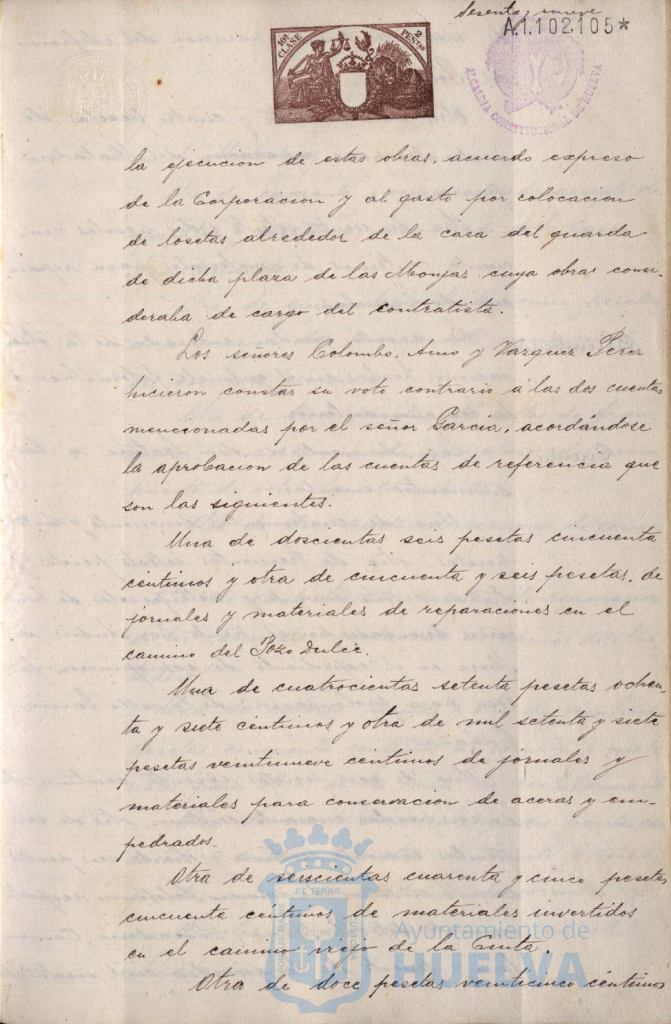 Sesenta y nueve
A.1.102.105*
10ª CLASE
2 PESETAS
ALCALDIA CONSTITUCIONAL DE HUELVA
la ejecucion de estas obras, acuerdo expreso
de la Corporacion y al gasto por colocacion
de losetas alrededor de la casa del guarda
de dicha plaza de las Monjas cuya obras consi-
deraba de cargo del contratista.
Los señores Colombo, Amo y Vazquez Perez
hicieron constar su voto contrario á las dos cuentas
mencionadas por el señor Garcia, acordándose
la aprobacion de las cuentas de referencia que
son las siguientes.
Una de doscientas seis pesetas cincuenta
céntimos y otra de cincuenta y seis pesetas, de
jornales y materiales de reparaciones en el
camino del Pozo Dulce.
Una de cuatrocientas setenta pesetas ochen-
ta y siete céntimos y otra de mil setenta y siete
pesetas veintinueve centimos de jornales y
materiales para conservacion de aceras y em-
pedrados.
Otra de seiscientas cuarenta y cinco pesetas
cincuenta céntimos de materiales invertidos
en el camino viejo de la Cinta.
Otra de doce pesetas veinticinco céntimos
ET TERRÆ
Ayuntamiento de
HUELVA